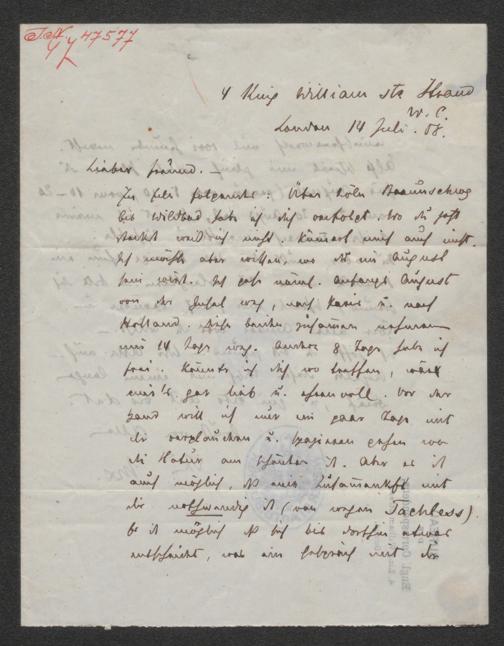 47577
4 King William str Strand
W. C.
London 14 Juli. 08.
Lieber Freund.
Zu folgendes. Über Köln Braunschweig
bis Wildbad habe ich dich verfolgt. Wo du jetzt
steckst weiß ich nicht. Kümmert mich auch nicht.
Ich möchte aber wissen, wo du im August
sein wirst. Ich gehe näml. Anfangs August
von der Insel weg, nach Paris u. nach
Holland. Diese beiden zusammen nehmen
mir 14 Tage weg. Andere 8 Tage habe ich
frei. Könnte ich dich wo treffen, wäre
mir's gar lieb u. ehrenvoll. Vor der
Hand will ich nur ein paar Tage mit
dir verplaudern u. spazieren gehen wo
die Natur am schönsten ist. Aber es ist
auch möglich, dass eine Zusammenkunft mit
dir nothwendig ist (von wegen Tachless).
Es ist möglich dass sich bis dorthin etwas
entscheidet, was ein Gespräch mit dir